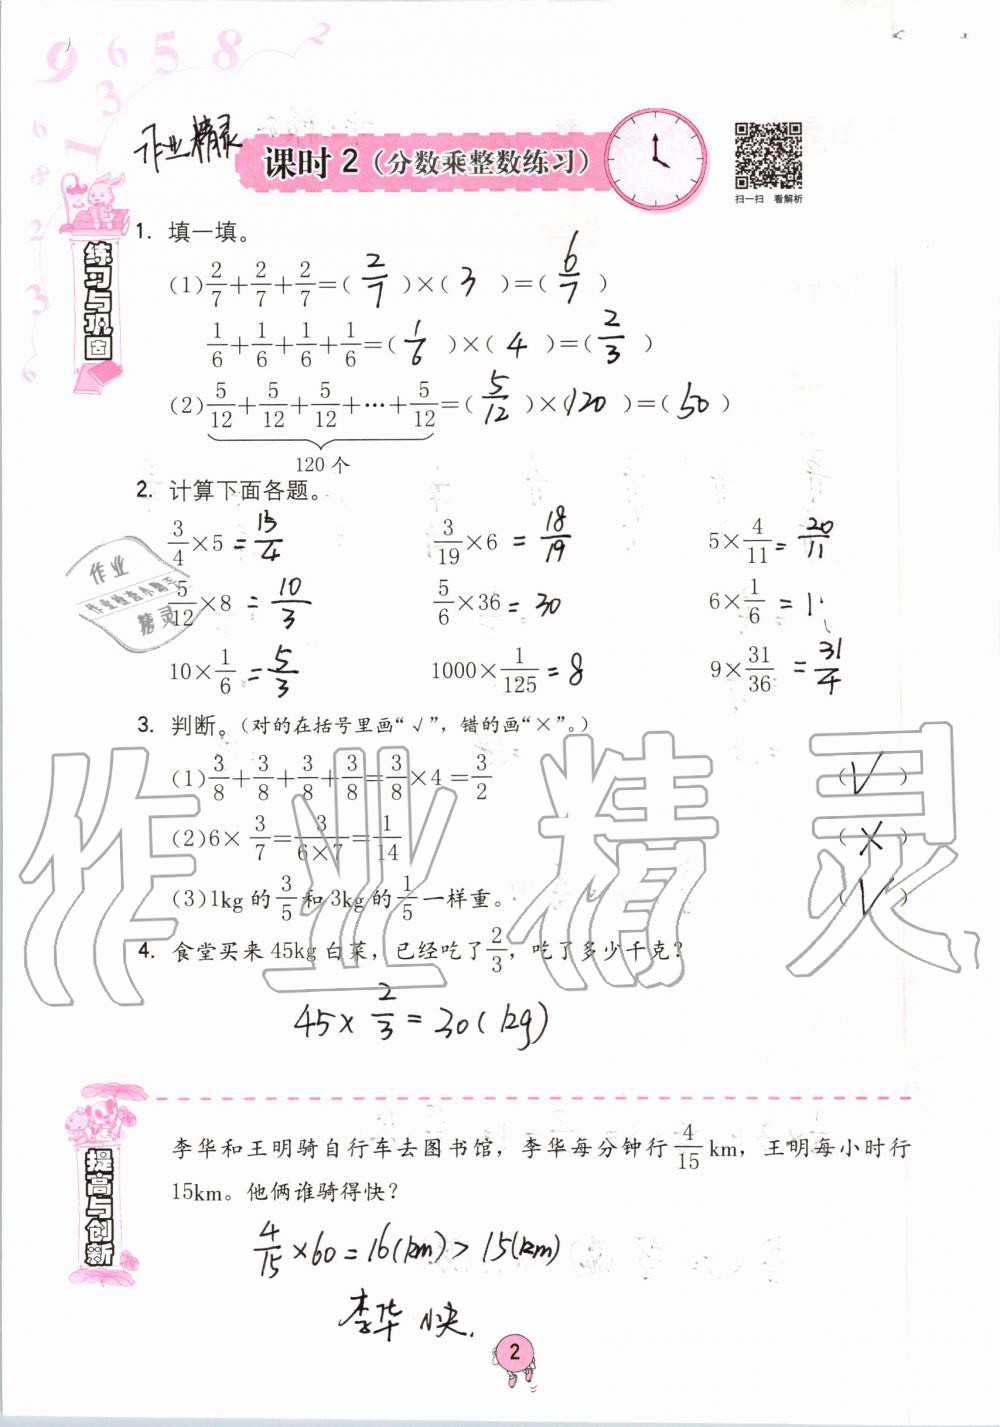 9 6 5 8 2
作业精灵
课时2（分数乘整数练习）
扫一扫 看解析
练习与巩固
1. 填一填。
(1) 2/7+2/7+2/7=( 2/7 )×( 3 )=( 6/7 )
1/6+1/6+1/6+1/6=( 1/6 )×( 4 )=( 2/3 )
(2) 5/12+5/12+5/12+…+5/12=( 5/12 )×( 120 )=( 50 )
120个
2. 计算下面各题。
3/4×5 = 15/4   3/19×6 = 18/19   5×4/11 = 20/11
5/12×8 = 10/3   5/6×36 = 30   6×1/6 = 1
10×1/6 = 5/3   1000×1/125 = 8   9×31/36 = 31/4
3. 判断。（对的在括号里画“√”，错的画“×”。）
(1) 3/8+3/8+3/8+3/8=3/8×4=3/2 ( √ )
(2) 6×3/7=3/(6×7)=1/14 ( × )
(3) 1kg的3/5和3kg的1/5一样重。 ( √ )
4. 食堂买来45kg白菜，已经吃了2/3，吃了多少千克？
45×2/3=30(kg)
作业精灵
提高与创新
李华和王明骑自行车去图书馆，李华每分钟行4/15km，王明每小时行
15km。他俩谁骑得快？
4/15×60=16(km)>15(km)
李华快.
2